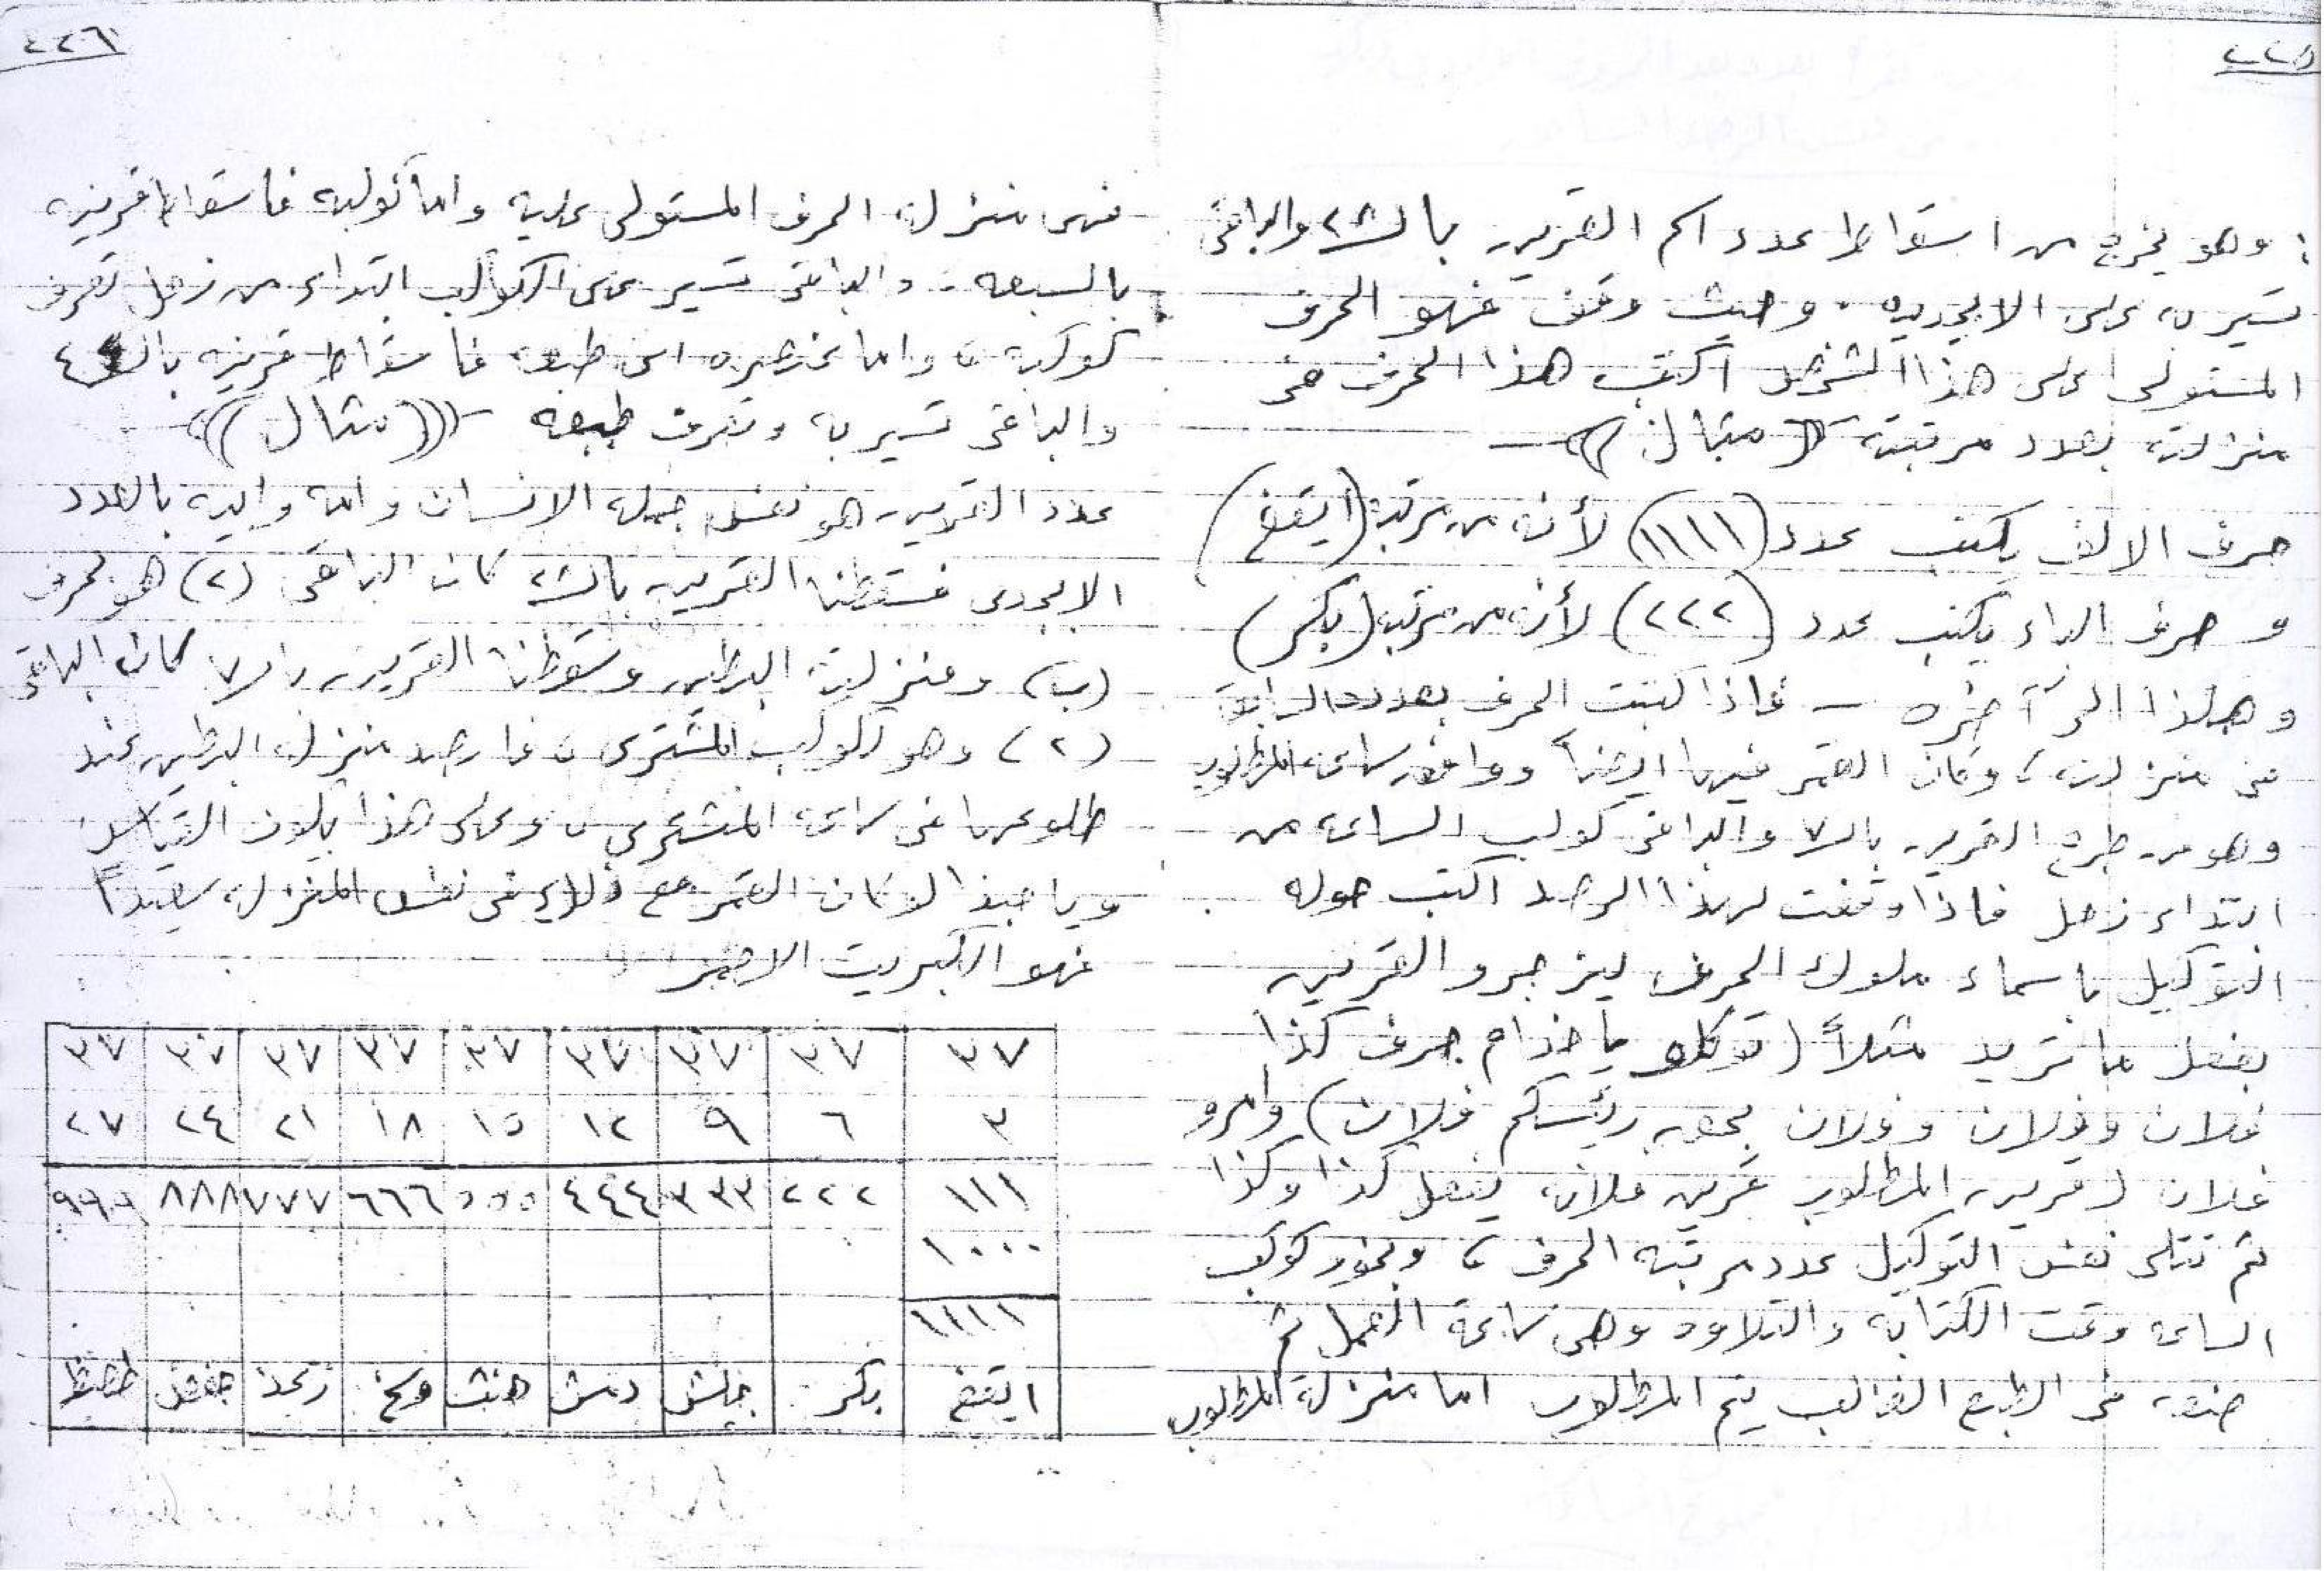 ٢٢٥
: وهو يخرج من اسقاط عدد اسم القرين بالـ٢٨ والباقى
تسير به على الابجديه . وحيث وقف فهو الحرف
المستولى على هذا الشخص اكتب هذا الحرف فى
منزلته بعدد مرتبته (( مثال ))
حرف الالف يكتب عدد (١١١١) لأنه من مرتبة (ايقغ)
و حرف الباء يكتب عدد (٢٢٢) لأنه من مرتبة (بكر)
و هكذا الى آخره – فاذا كتبت الحرف بعدد
فى منزلته، وكان القمر فيها ايضاً ووافق ساعة المطلوب
وهو من طرح القرين بالـ٧ والباقى كوكب الساعة من
ابتداء زحل فاذا وفقت لهذا الرصد اكتب حوله
التوكيل باسماء ملوك الحرف ليزجرو القرين
بفعل ما تريد مثلاً (توكلو ياخدام حرف كذا
فلان وفلان وفلان بحق رئيسكم فلان) وامرو
فلان (قرين المطلوب قرين فلانه يفعل كذا وكذا
ثم تتلى نفس التوكيل عدد مرتبه الحرف ، وبخور كوكب
الساعه وقت الكتابه والتلاوه وهى ساعة العمل ثم
ضعه فى الطبع الغالب يتم المطلوب اما منزلة المطلوب
٢٢٦
فهى منزله الحرف المستولى عليه واما كوكبه فاسقاط قرينه
بالسبعه . والباقى تسير على الكواكب ابتداء من زحل تعرف
كوكبه ، واما عنصره اى طبعه فاسقاط قرينه بالـ٤
والباقى تسير به وتعرف طبعه – (((مثال)))
عدد القرين هو نفس جمله الانسان وامه وابيه بالعدد
الابجدى فسقطنا القرين بالـ٢٨ كان الباقى (٢) هو حرف
(ب) ومنزلته البطين وسقطنا القرين بالـ٧ كان الباقى
(٢) وهو كوكب المشترى ، فارصد منزله البطين عند
طلوعها فى ساعة المشترى ، وعلى هذا يكون القياس
وياحبذا لو كان القمر مع ذلك فى نفس المنزله سعيداً
فهو الكبريت الاحمر
٣٧ ٣٧ ٣٧ ٣٧ ٣٧ ٣٧ ٣٧ ٣٧ ٣٧
٣ ٦ ٩ ١٢ ١٥ ١٨ ٢١ ٢٤ ٢٧
١١١ ٢٢٢ ٣٣٣ ٤٤٤ ٥٥٥ ٦٦٦ ٧٧٧ ٨٨٨ ٩٩٩
١٠٠٠
١١١١
ايقغ بكر جلش دمت هنث وسخ زعذ حفض طصظ